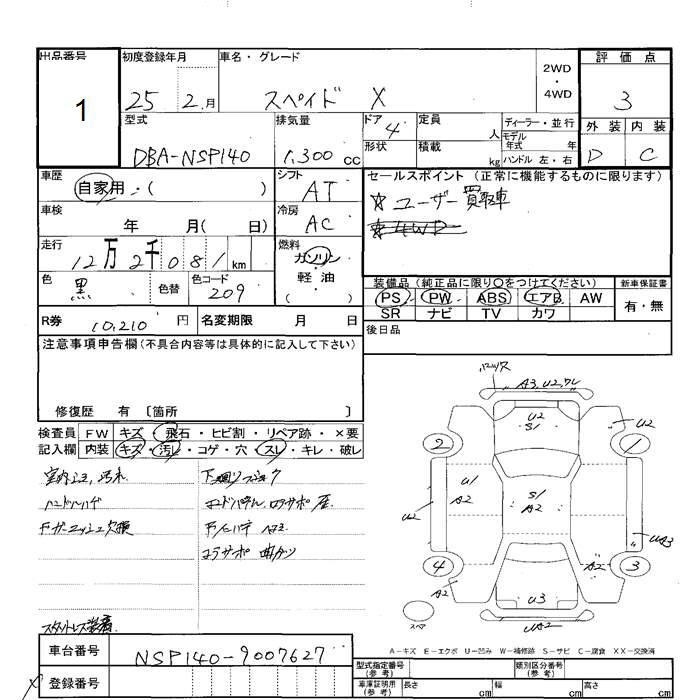 出品番号 1
初度登録年月 25 2月
車名・グレード スペイド X
2WD・4WD
評価点 3
外装 D 内装 C
型式 DBA-NSP140
排気量 1,300cc
ドア 4
形状
定員 人
積載 kg
ディーラー・並行
モデル年式 年
ハンドル 左・右
車歴 自家用・( )
シフト AT
セールスポイント(正常に機能するものに限ります)
☆ユーザー買取車
☆4WD
車検 年 月( 日)
冷房 AC
走行 12万2千081km
燃料 ガソリン・軽油・( )
色 黒 色替 色コード 209
装備品(純正品に限り○をつけてください)
PS PW ABS エアB AW
SR ナビ TV カワ
新車保証書 有・無
R券 10,210円
名変期限 月 日
後日品
注意事項申告欄(不具合内容等は具体的に記入して下さい)
修復歴 有 〔箇所 〕
検査員記入欄
FW キズ・飛石・ヒビ割・リペア跡・×要
内装 キズ・汚レ・コゲ・穴・スレ・キレ・破レ
室内シミ、汚れ
ハンドルハゲ
スタットレス装着
A2, U2, ワレ
U2
S1
2
1
U2
U1
A2
U2
S1
A2
UA3
4
3
A2
A2
U3
UA2
スペア
A-キズ E-エクボ U-凹み W-補修跡 S-サビ C-腐食 XX-交換済
車台番号 NSP140-9007627
登録番号
型式指定番号(参考)
類別区分番号(参考)
車庫証明用(参考) 長さ cm 幅 cm 高さ cm